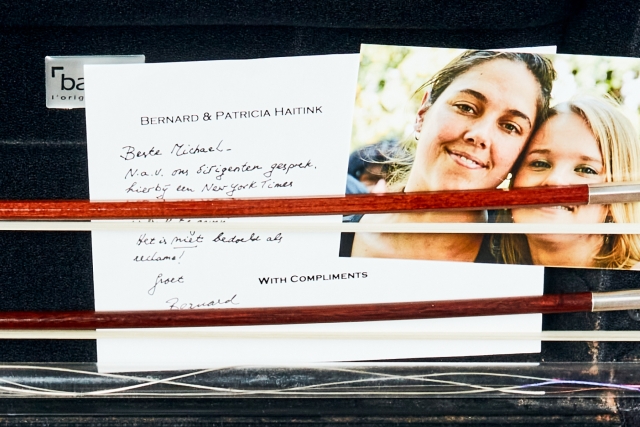 ba
l'orig
BERNARD & PATRICIA HAITINK
Beste Michael -
N.a.v. ons dirigenten gesprek,
hierbij een New York Times
Het is niet bedoeld als
reclame!
Groet
Bernard
WITH COMPLIMENTS